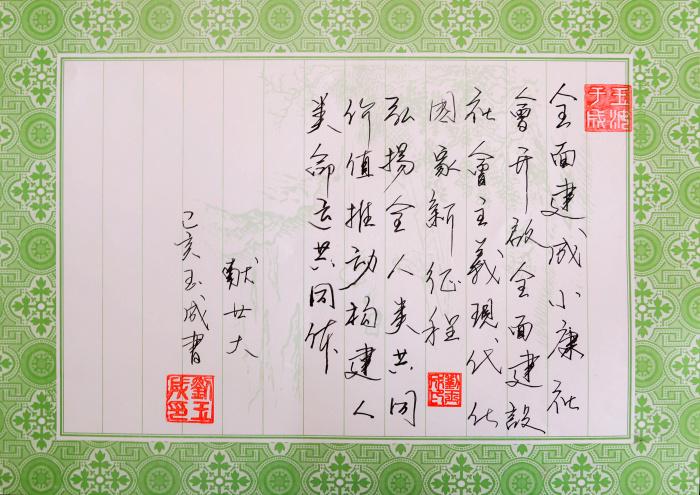 玉汝于成
全面建成小康社
會开啟全面建設
社會主義現代化
国家新征程
弘揚全人类共同
价值推动构建人
类命运共同体
献廿大
己亥玉成書
劉玉成印